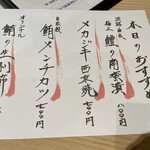 本日のおすすめ
淡路由良
極上 鱧の南蛮漬 八〇〇円
メカジキ西京焼 七〇〇円
自家製
鯖メンチカツ 七〇〇円
オリジナル
鯖の一刺